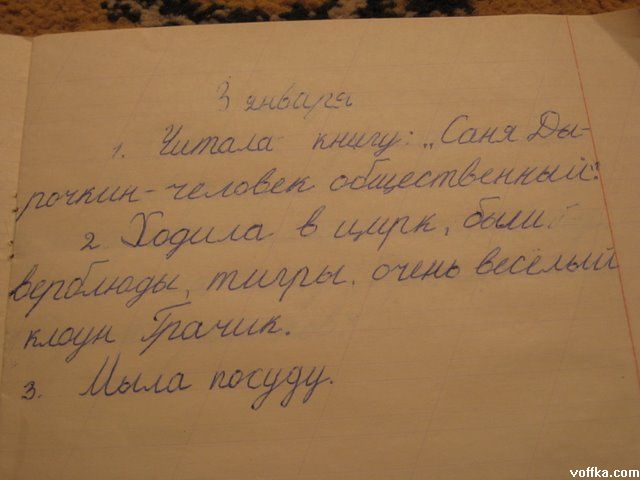 3 января
1. Читала книгу: „Саня Ды-
рочкин-человек общественный."
2. Ходила в цирк, были
верблюды, тигры, очень весёлый
клоун Грачик.
3. Мыла посуду.
voffka.com